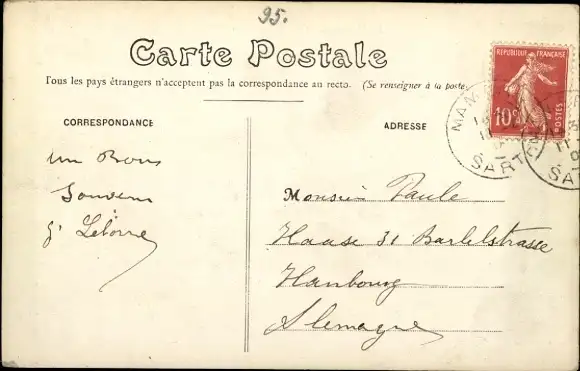 95.
Carte Postale
Tous les pays étrangers n'acceptent pas la correspondance au recto. (Se renseigner à la poste
CORRESPONDANCE
ADRESSE
RÉPUBLIQUE FRANÇAISE
10c
POSTES
SARTHE
un Bons
Souvenir
Monsieur Paule
Haase 31 Bartelstrasse
Hanbourg
Alemagne